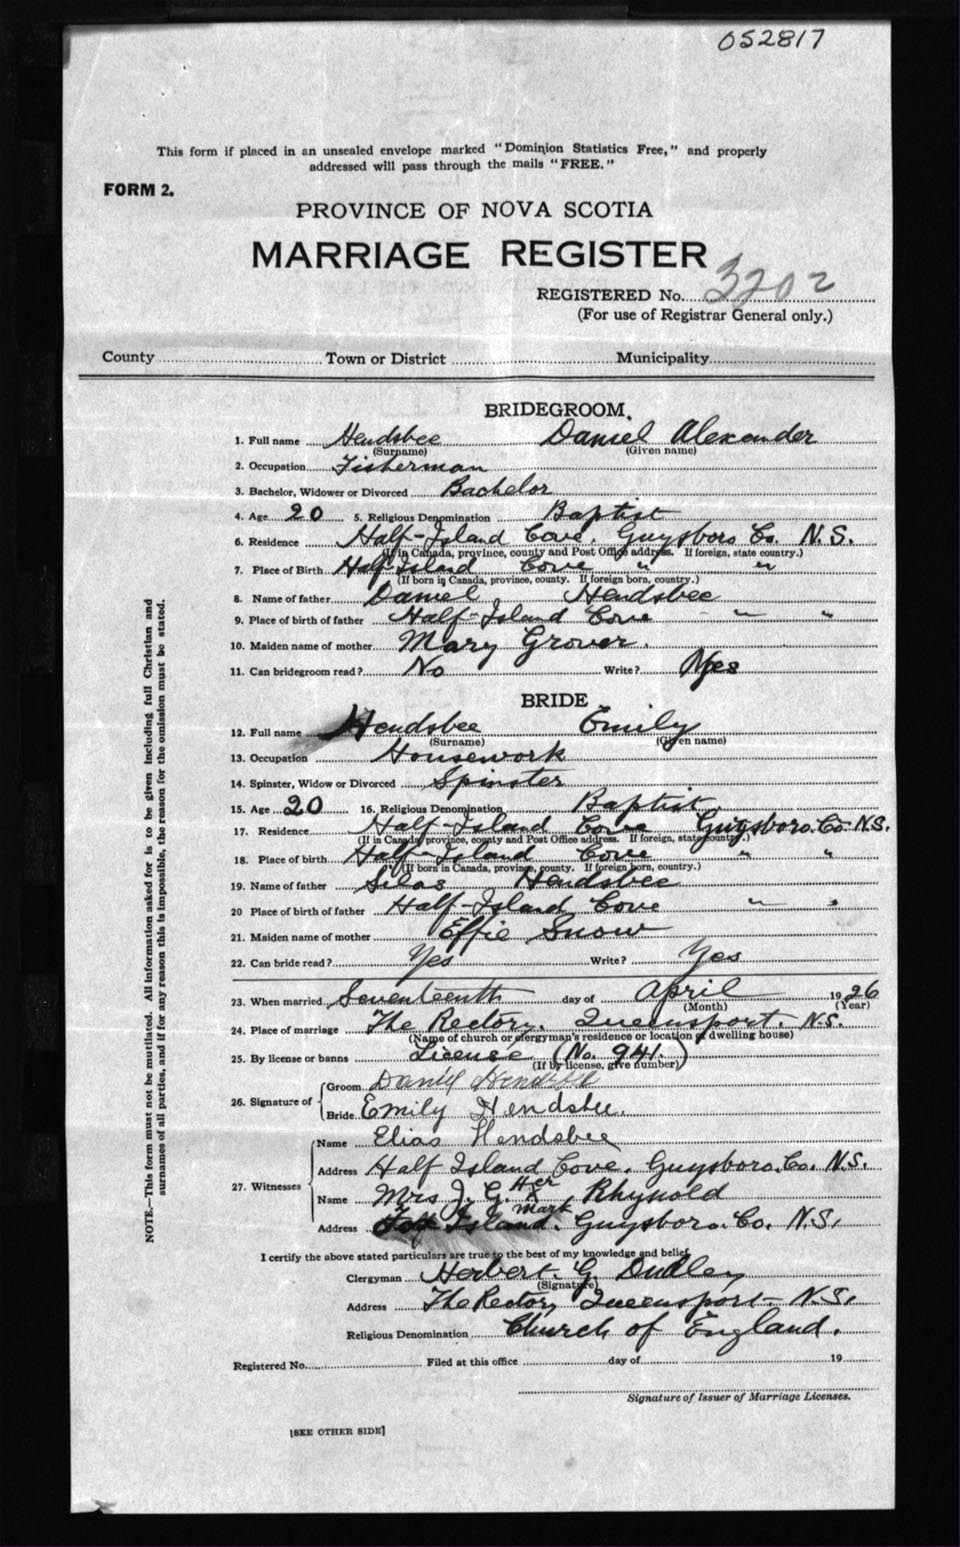 052817
This form if placed in an unsealed envelope marked "Dominion Statistics Free," and properly
addressed will pass through the mails "FREE."
FORM 2.
PROVINCE OF NOVA SCOTIA
MARRIAGE REGISTER
REGISTERED No. 3202
(For use of Registrar General only.)
County Town or District Municipality
BRIDEGROOM.
1. Full name Hendsbee Daniel Alexander
(Surname) (Given name)
2. Occupation Fisherman
3. Bachelor, Widower or Divorced Bachelor
4. Age 20 5. Religious Denomination Baptist
6. Residence Half-Island Cove, Guysboro Co. N.S.
(If in Canada, province, county and Post Office address. If foreign, state country.)
7. Place of Birth Half-Island Cove " "
(If born in Canada, province, county. If foreign born, country.)
8. Name of father Daniel Hendsbee
9. Place of birth of father Half-Island Cove " "
10. Maiden name of mother Mary Grover.
11. Can bridegroom read? No Write? Yes
BRIDE
12. Full name Hendsbee Emily
(Surname) (Given name)
13. Occupation Housework
14. Spinster, Widow or Divorced Spinster
15. Age 20 16. Religious Denomination Baptist
17. Residence Half-Island Cove Guysboro. Co. N.S.
(If in Canada, province, county and Post Office address. If foreign, state country.)
18. Place of birth Half-Island Cove " "
(If born in Canada, province, county. If foreign born, country.)
19. Name of father Silas Hendsbee
20 Place of birth of father Half-Island Cove " "
21. Maiden name of mother Effie Snow
22. Can bride read? Yes Write? Yes
23. When married Seventeenth day of April 1926
(Month) (Year)
24. Place of marriage The Rectory, Queensport, N.S.
(Name of church or clergyman's residence or location of dwelling house)
25. By license or banns License (No. 941.)
(If by license, give number)
26. Signature of Groom Daniel Hendsbee
Bride Emily Hendsbee.
27. Witnesses Name Elias Hendsbee
Address Half Island Cove, Guysboro. Co. N.S.
Name Mrs J. G. Her X mark Rhynold
Address Island, Guysboro. Co. N.S.
I certify the above stated particulars are true to the best of my knowledge and belief
Clergyman Herbert G. Dudley
(Signature)
Address The Rectory Queensport N.S.
Religious Denomination Church of England.
Registered No. Filed at this office day of 19
Signature of Issuer of Marriage Licenses.
[SEE OTHER SIDE]
NOTE.—This form must not be mutilated. All information asked for is to be given including full Christian and
surnames of all parties, and if for any reason this is impossible, the reason for the omission must be stated.